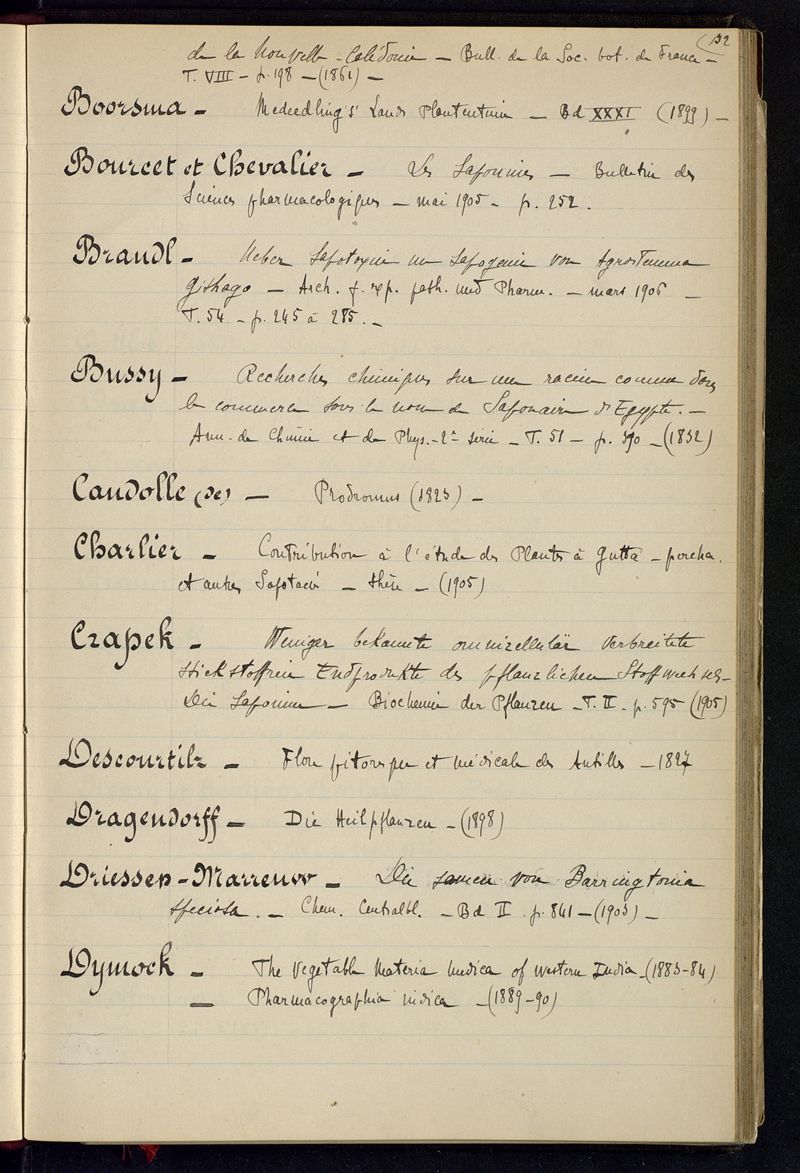 132
de la Nouvelle-Calédonie — Bull. de la Soc. bot. de France —
T. VIII — p. 198 — (1861) —
Boorsma — Mededeeling's Lands Plantentuin — Bd XXXI (1899) —
Bourcet et Chevalier — Les Saponines — Bulletin des
Sciences pharmacologiques — mai 1905 — p. 252.
Brandl — Ueber Sapotoxin un Sapogenin von Agrostemma
Githago — Arch. f. exp. path. und Pharm. — mars 1906 —
T. 54 — p. 245 à 285. —
Bussy — Recherches chimiques sur une racine connue dans
le commerce sous le nom de Saponaire d'Egypte. —
Ann. de Chimie et de Phys. — 2e série — T. 51 — p. 390 — (1832)
Candolle (de) — Prodromus (1823) —
Charlier — Contribution à l'étude des Plantes à Gutta-percha
et autres Sapotacées — thèse — (1905)
Czapek — Weniger bekannte omnizellulär verbreitete
stickstoffreie Endprodukte des pflanzlichen Stoffwechsels —
Die Saponine — Biochemie der Pflanzen — T. II — p. 595 (1905)
Descourtilz — Flore pittoresque et médicale des Antilles — 1827
Dragendorff — Die Heilpflanzen — (1898)
Driessen-Marreuw — Die samen von Barringtonia
speciosa. — Chem. Centralbl. — Bd II p. 841 — (1903) —
Dymock — The Vegetable Materia medica of Western India — (1883-84)
— Pharmacographia indica — (1889-90)